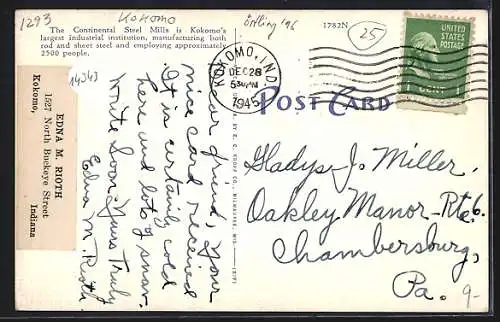 1293
Kokomo
Örtling '96
1782N
25
The Continental Steel Mills is Kokomo's
largest industrial institution, manufacturing both
rod and sheet steel and employing approximately
2500 people.
14343
KOKOMO, IND.
DEC 28
5 30 PM
1945
UNITED STATES
POSTAGE
1 CENT 1
POST CARD
EDNA M. RIOTH
1527 North Buckeye Street
Kokomo, Indiana
Dear friend, Your
nice card received
It is certainly cold
here and lots of snow.
Write Soon. Yours Truly
Edna M. Rioth
BY E. C. KROPP CO., MILWAUKEE, WIS.
Gladys J. Miller,
Oakley Manor-Rte 6.
Chambersburg,
Pa.
9-